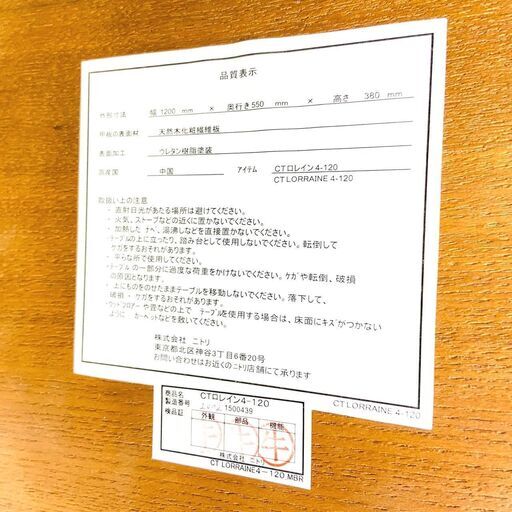 品質表示
外形寸法 : 幅 1200 mm × 奥行き 550 mm × 高さ 380 mm
甲板の表面材 天然木化粧繊維板
表面加工 ウレタン樹脂塗装
原産国 中国 アイテム CTロレイン4-120
CT LORRAINE 4-120
取扱い上の注意
・ 直射日光があたる場所は避けてください。
・ 火気、ストーブなどの近くに置かないでください。
・ 加熱した ナベ、湯沸しなどを直接置かないでください。
・ テーブルの上に立ったり、踏み台として使用しないでください。転倒して
ケガをするおそれがあります。
・ 平らな所で使用してください。
・ テーブルの一部分に過度な荷重をかけないでください。ケガや転倒、破損
の原因となります。
・ 上にものをのせたままテーブルを移動しないでください。落下して、
破損・ケガをするおそれがあります。
・ ウッドフロアーや畳などの上で テーブルを使用する場合は、床面にキズがつかない
ように カーペットなどを敷いてください。
株式会社 ニトリ
東京都北区神谷3丁目6番20号
お問い合わせはお近くのニトリ店舗にて承ります
CT LORRAINE 4-120
商品名 CTロレイン4-120
製造番号 1500439
検品証 外観 部品 機能
牛
株式会社 ニトリ
CT LORRAINE4-120 MBR